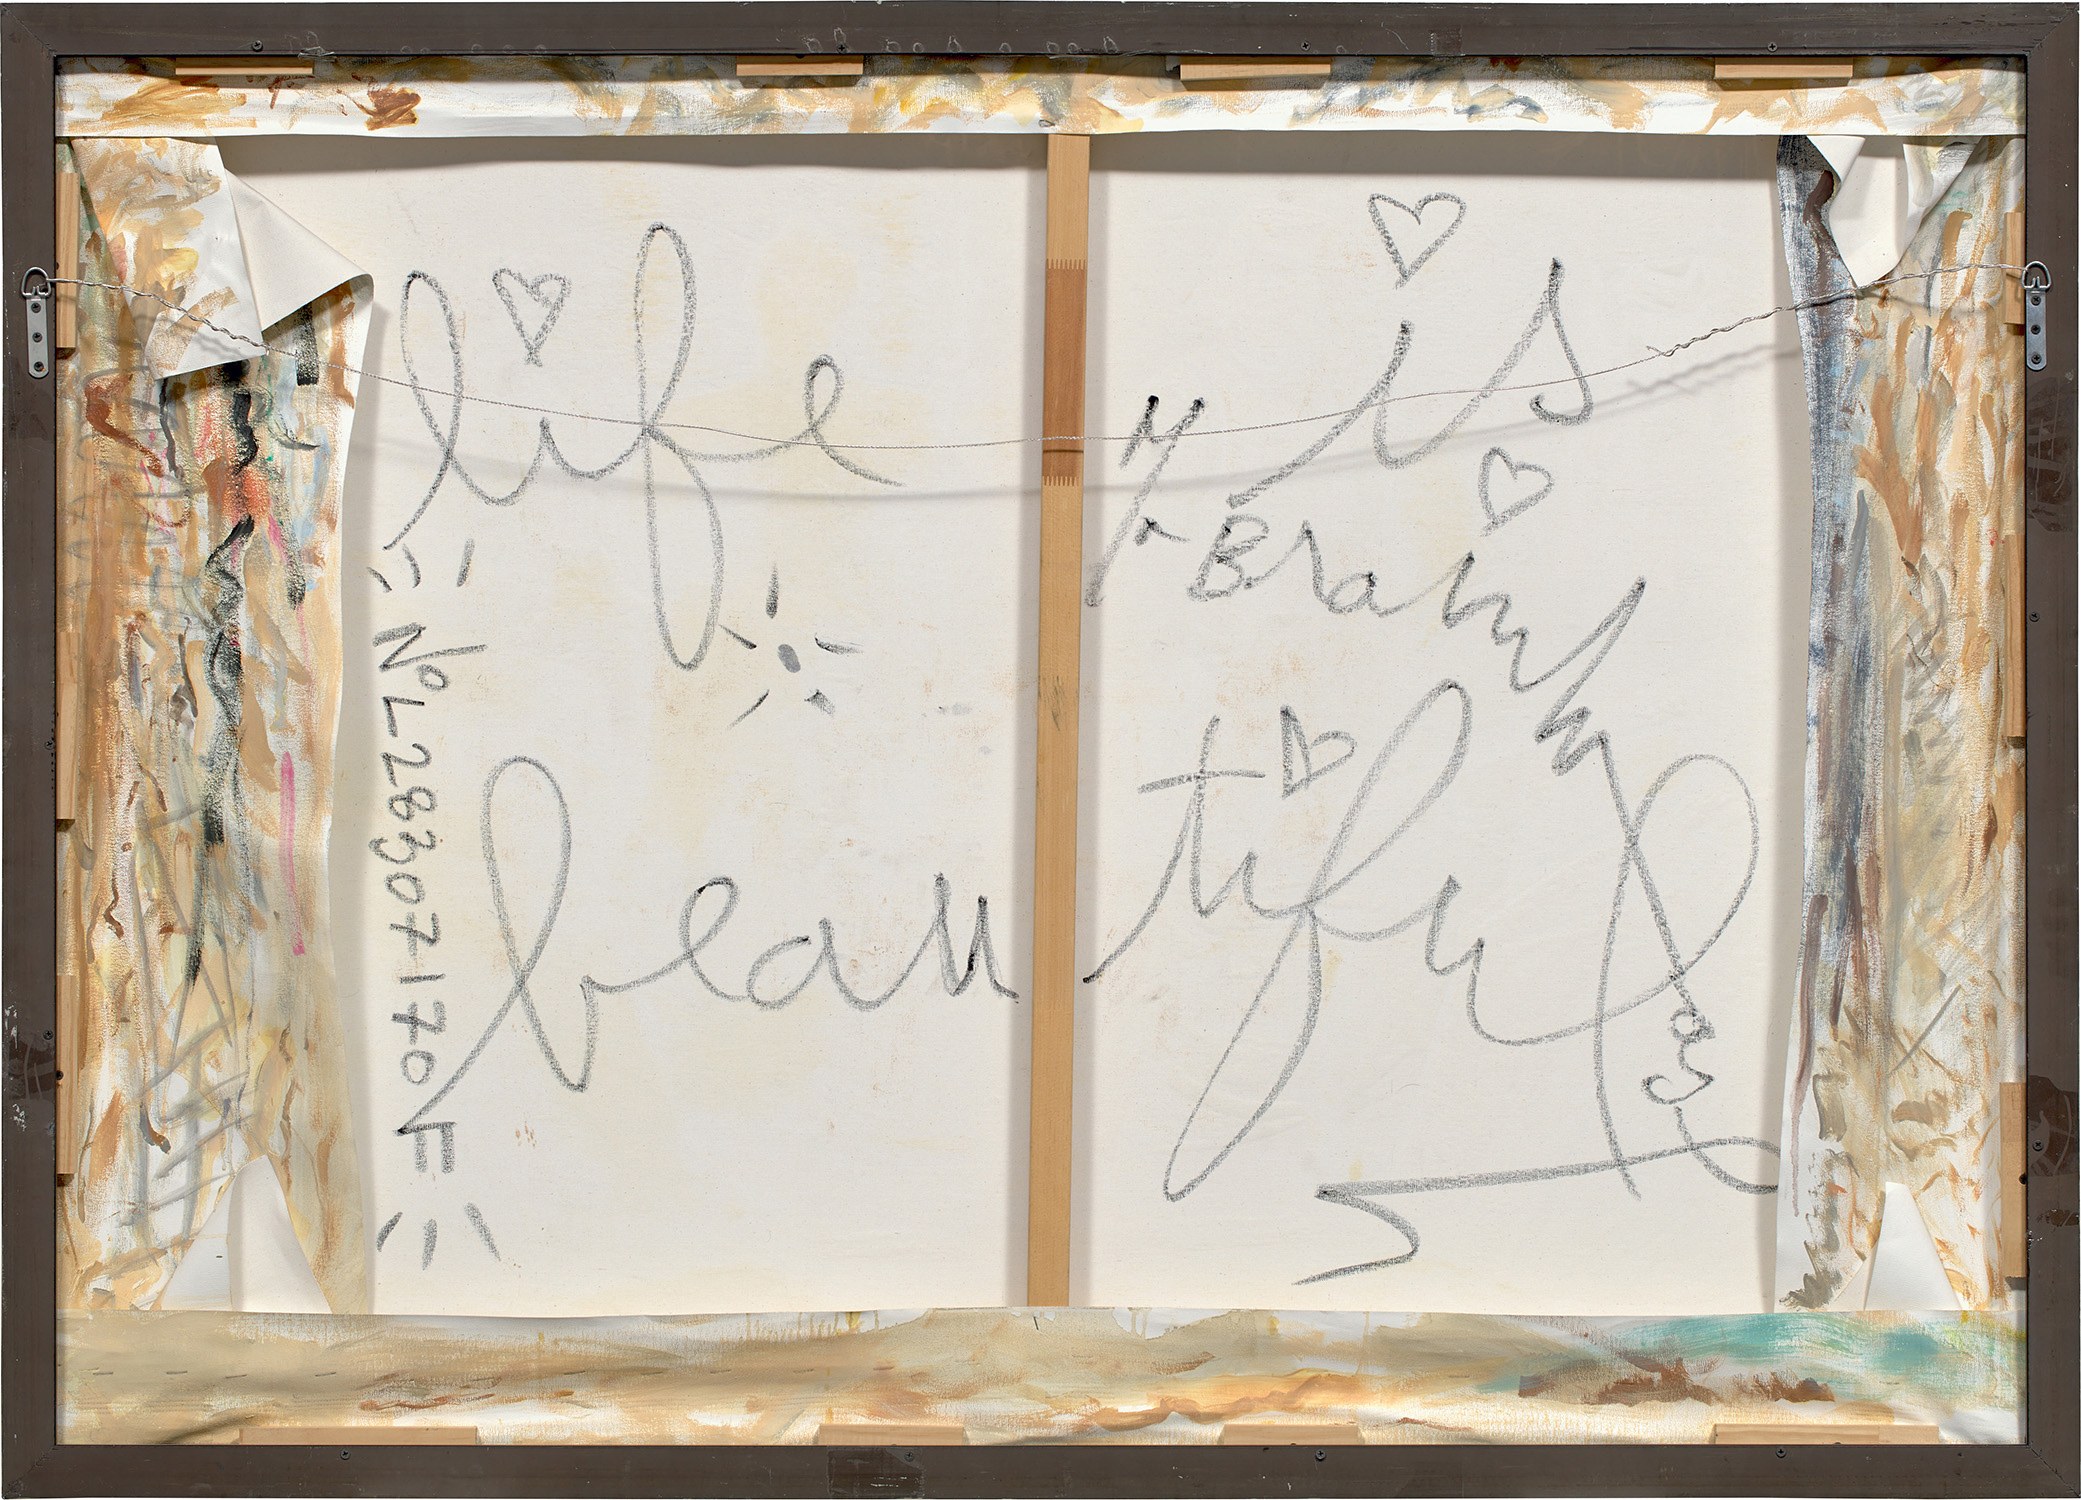 life is
Mr Brainwash
beautiful
No L28307170F